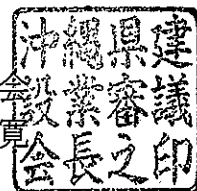 沖縄県建
設業審議
会長之印
会寛